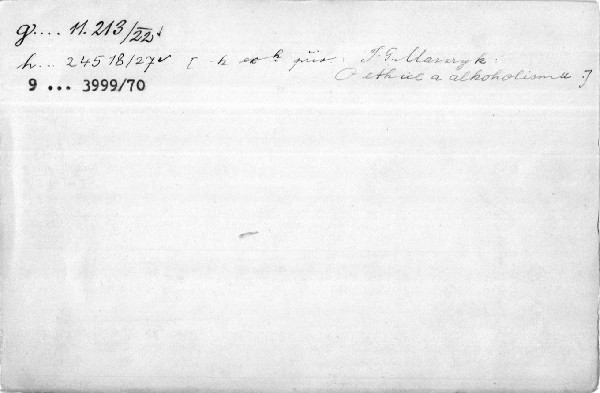 g.... 11.213/22
h... 24518/27 [ k ex. přiv. T. G. Masaryk:
O ethice a alkoholismu.]
9 ... 3999/70